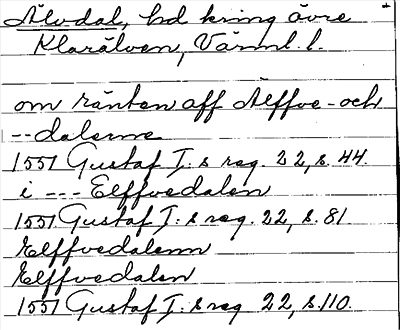 Älvdal, bd kring övre
Klarälven, Värml. l.
om ränten aff Älffve - och
-- dalerne
1551 Gustaf I:s reg. 22, s. 44.
i --- Elffvedalen
1551 Gustaf I:s reg. 22, s. 81.
Elffvedalenn
Elffvedalen
1551 Gustaf I:s reg. 22, s. 110.